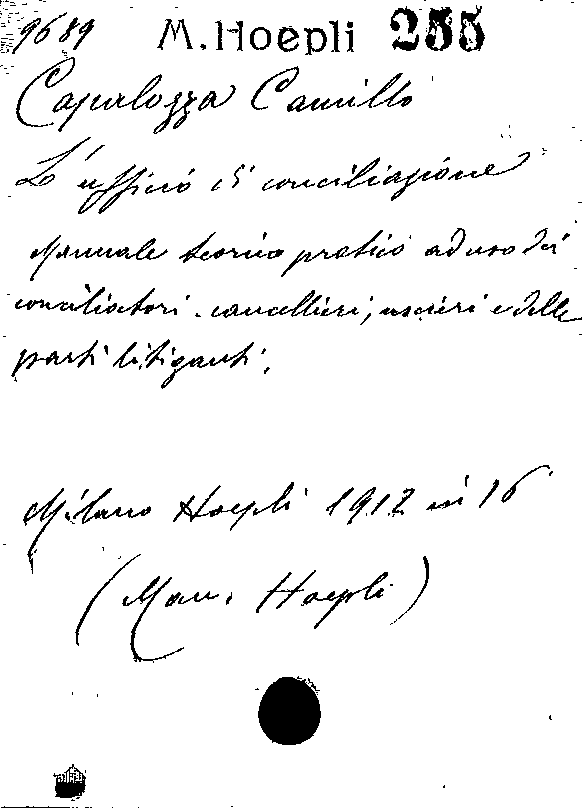 9689 M. Hoepli 255
Capalozza Camillo
L'ufficio di conciliazione
Manuale teorico pratico ad uso dei
conciliatori, cancellieri, uscieri e delle
parti litiganti.
Milano Hoepli 1912 in 16
(Man. Hoepli)